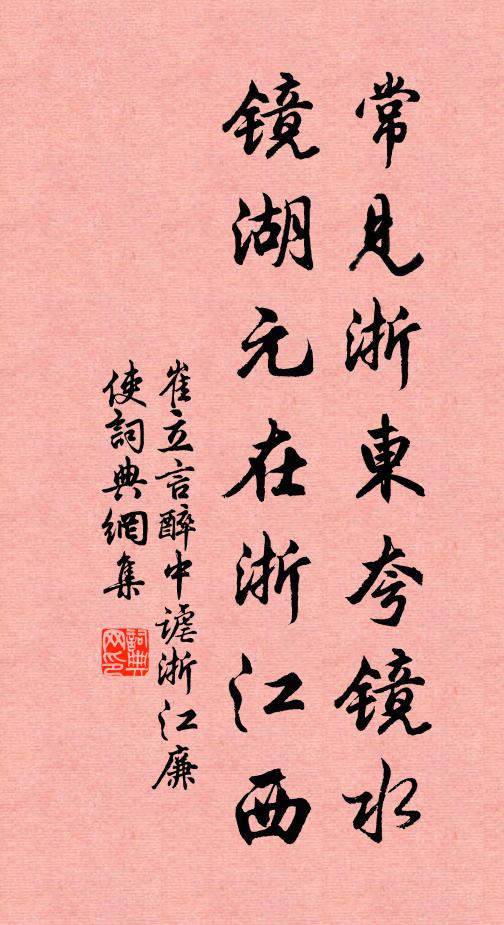 常見浙東夸鏡水
鏡湖元在浙江西
崔立言醉中謔浙江廉
使詞典網集
詞典網印